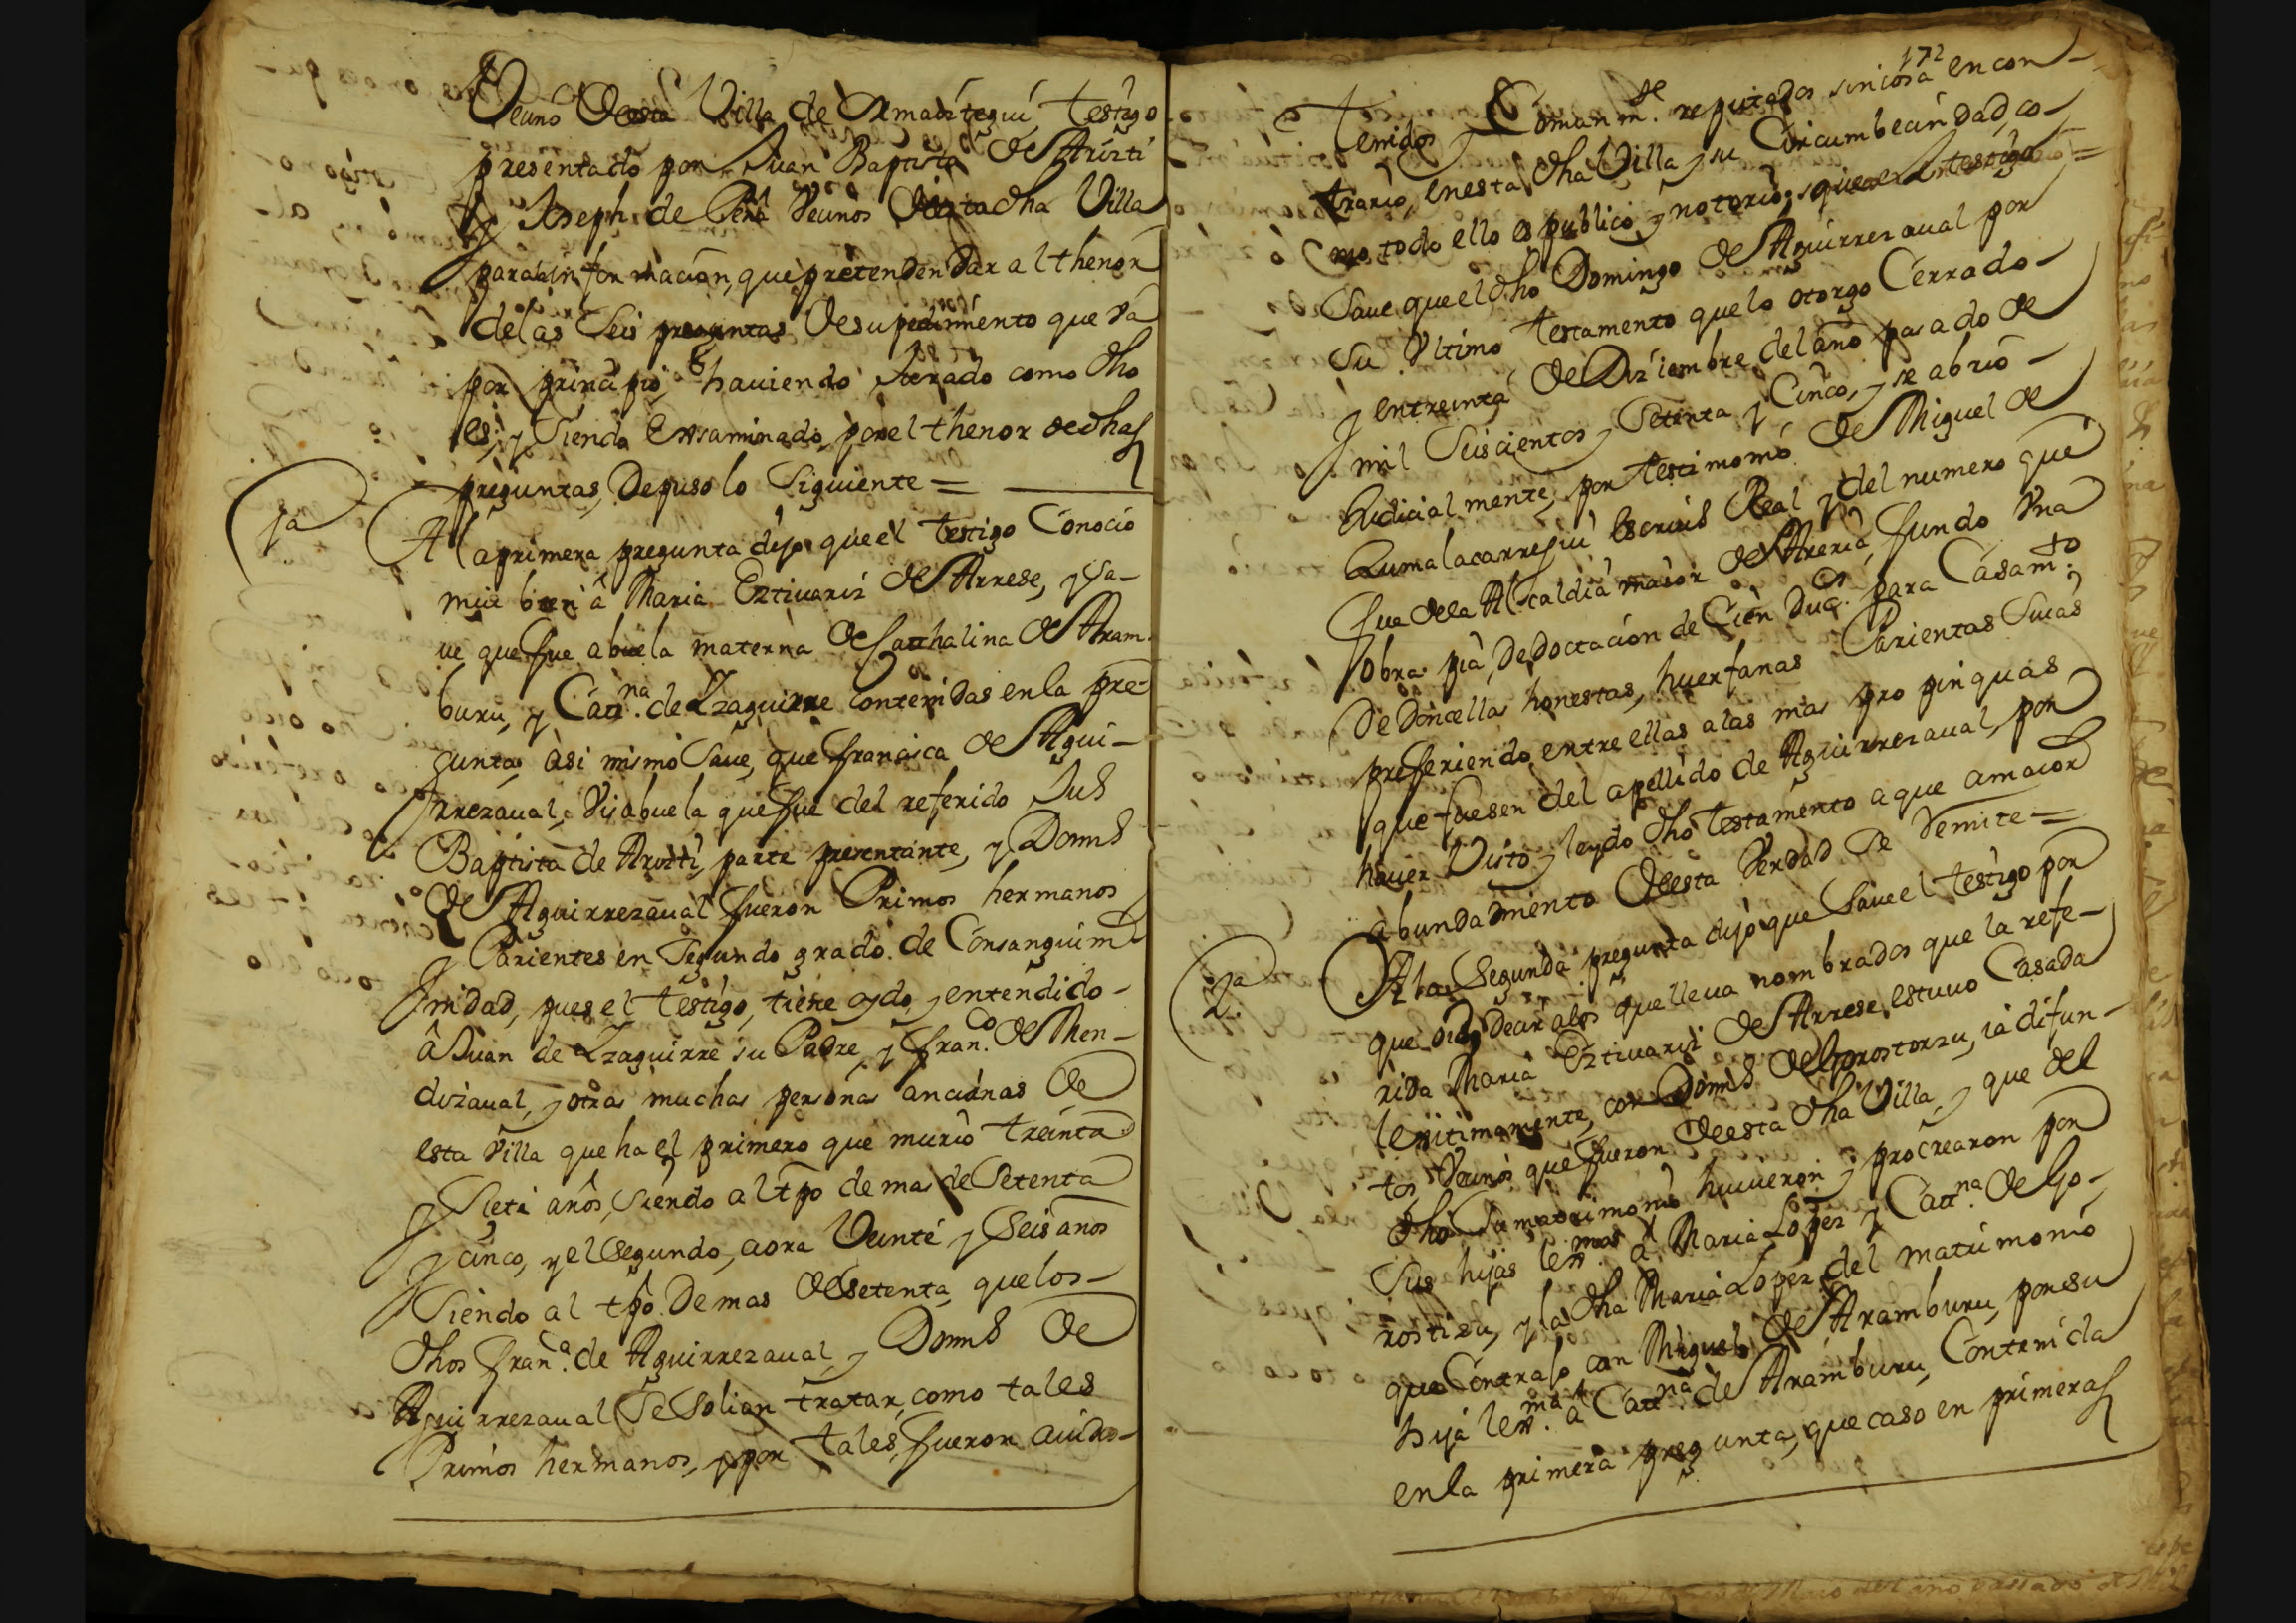 Veçino Desta Villa de Ormaiztegui, testigo
presentado por Juan Baptista de Arizti
y Joseph de Peña Veçinos Desta dha Villa
para la informaçion, que pretenden dar al thenor
de las Seis preguntas De su pedimiento que va
por prinçipio, haviendo Jurado como dho
es, y Siendo Exsaminado, por el thenor de dhas
preguntas, Depuso lo Siguiente =
1a A la primera pregunta dijo que el testigo Conocio
mui bien â Maria Eztivariz de Arrese, y sa-
ve que fue abuela materna de Catthalina de Aram-
buru, y Cattna. de Yzaguirre contenidas en la pre-
gunta, asi mismo save, que Françisca de Agui-
rrezaval, Visabuela que fue del referido Jun
Baptista de Arizti, parte presentante, y Domo
de Aguirrezaval fueron Primos hermanos
y Parientes en segundo grado de Consangui-
nidad, pues el testigo, tiene oydo, y entendido
â Juan de Yzaguirre su Padre, y Franco. de Men-
dizaval, y otras muchas personas ancianas de
esta Villa que ha el primero que murio treinta
y Siete años, siendo al tpo de mas de Setenta
y cinco, y el Segundo, aora Veinte y Seis años
Siendo al tpo. De mas de setenta, que los
dhos Frana. de Aguirrezaval, y Domo de
Aguirrezaval Se Solian tratar, como tales
Primos hermanos, y por tales, fueron avidos
172
tenidos y Comunmte. reputados sin cosa en con-
trario, en esta dha Villa y su Circumbecindad, co-
mo todo ello es publico, y notorio, y que el testigo
Save que el dho Domingo de Aguirrezaval por
Su Ultimo testamento que lo otorgo Cerrado
en treinta De Diziembre, del año pasado de
mil Seiscientos y Setenta y Cinco, y se abrio
Judicialmente, por testimonio de Miguel de
Zumalacarregui escrivo Real y del numero que
fue de la Alcaldia maior de Areria, fundo Vna
obra pia, De doctaçion de Çien Ducs. para Casamto.
De Donçellas honestas, huerfanas Parientas Suias
prefiriendo, entre ellas a las mas propinquas
que fuesen del apellido de Aguirrezaval, por
haver Visto, y leydo dho Testamento a que a maior
abundamiento Desta Verdad Se Remite =
2a A la Segunda pregunta dijo que Save el testigo por
que oido deçir a los que lleva nombrados que la refe-
rida Maria Eztivariz de Arrese, estuvo Casada
lexitimamente, con Domo de Gorostorzu, ia difun-
tos, Veçinos que fueron de esta dha Villa, y que del
dho Su matrimonio huvieron y procrearon por
Sus hijas lexmas. â Maria Lopez y Cattna. de Go-
rostizu, y la dha Maria Lopez, del matrimonio
que Contrajo con Miguel de Aramburu, por su
hija lexma. a Cattna. de Aramburu, Contenida
en la primera pregunta, que caso en primeras